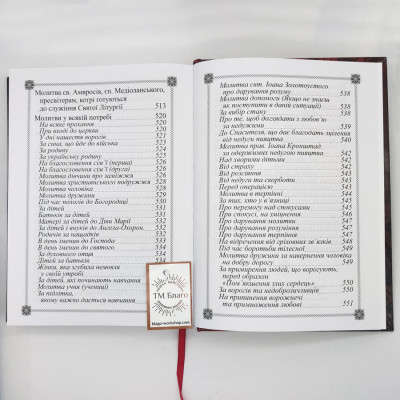 Молитва св. Амвросія, єп. Медіоланського,
пресвітерам, котрі готуються
до служіння Святої Літургії 513
Молитви у всякій потребі 520
На всяке прохання 520
При вході до церкви 520
У дні нашестя ворогів 521
За сина, що йде до війська 523
За родину 524
За українську родину 525
На благословення сім'ї (перша) 526
На благословення сім'ї (друга) 526
Молитва дівчини про заміжжя 526
Молитва християнського подружжя 528
Молитва чоловіка 528
Молитва дружини 529
Під час пологів до Богородиці 530
За дітей 530
Батьків за дітей 531
Матері за дітей до Діви Марії 531
За дітей і внуків до Ангела-Охорон. 532
Родичів за нащадків 532
В день імення до Господа 533
В день імення до святого 534
За духовного отця 534
Дітей за батьків 534
Жінки, яка згубила немовля
у своїй утробі
За дітей, які починають навчання
Молитва учня (учениці)
За підлітка,
якому важко дається навчання
ТМ Благо
blago-workshop.com
Молитва свт. Іоана Золотоустого
про дарування розуму 538
Молитва допомоги (Якщо не знаєм
як поступити в даній ситуації) 538
За вибір стану 538
Про те, щоб доглядати з любов'ю
за недужими 539
До Спасителя, що дає благодать зцілення
від недуги пияцтва 540
Молитва прав. Іоана Кронштад.
за одержимих недугою пияцтва 542
Над хворим дитям 542
Від вроків 542
Від розсіяння 543
Від недуги та скорботи 543
Перед операцією 543
Молитва в терпінні 543
За тих, хто у в'язниці 545
Про перемогу над спокусами 545
Про спокусі, на зміцнення 546
Про дарування молитви 547
Про дарування розуміння 547
Про дарування терпіння 547
На відречення від гріховних зв'язків 548
Під час боротьби тілесної 549
Молитва дружини за навернення чоловіка
на добру дорогу 549
За примирення людей, що ворогують,
перед образом
«Пом'якшення злих сердець» 550
За ворогів та недоброзичливців 550
На припинення ворожнечі
та примноження любові 551